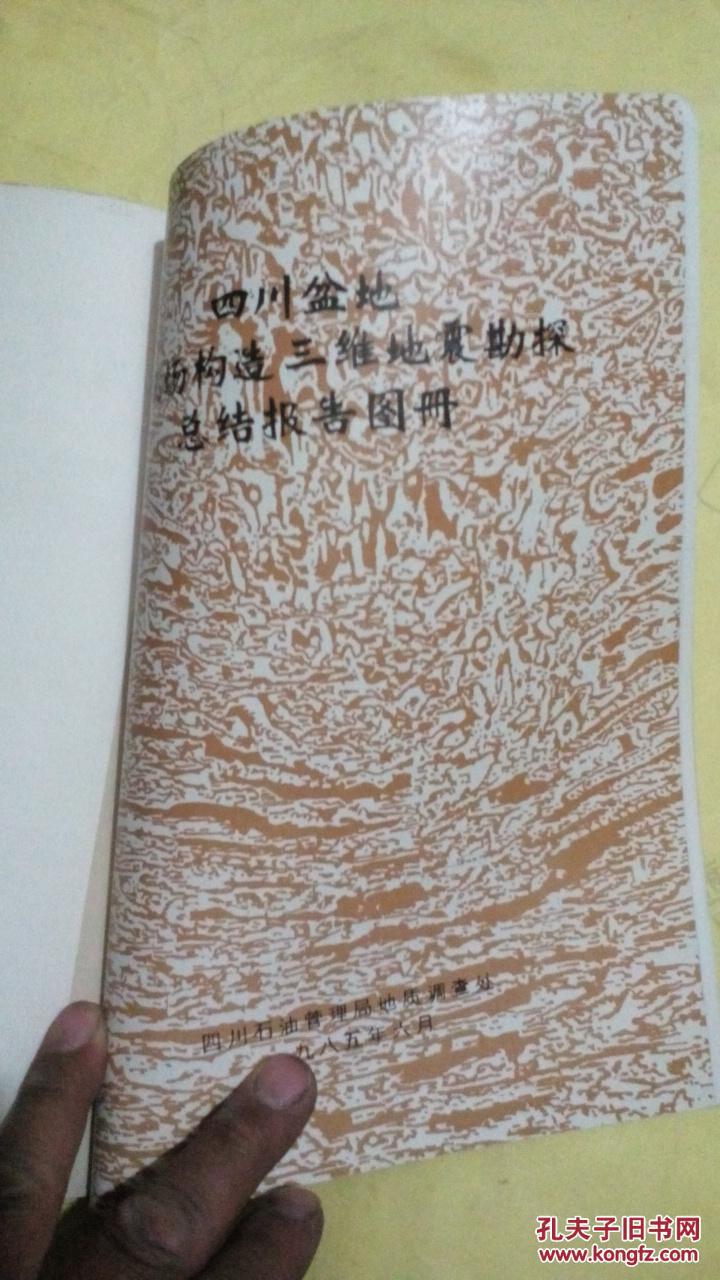 四川盆地
场构造三维地震勘探
总结报告图册
四川石油管理局地质调查处
九八五年六月
孔夫子旧书网
www.kongfz.com